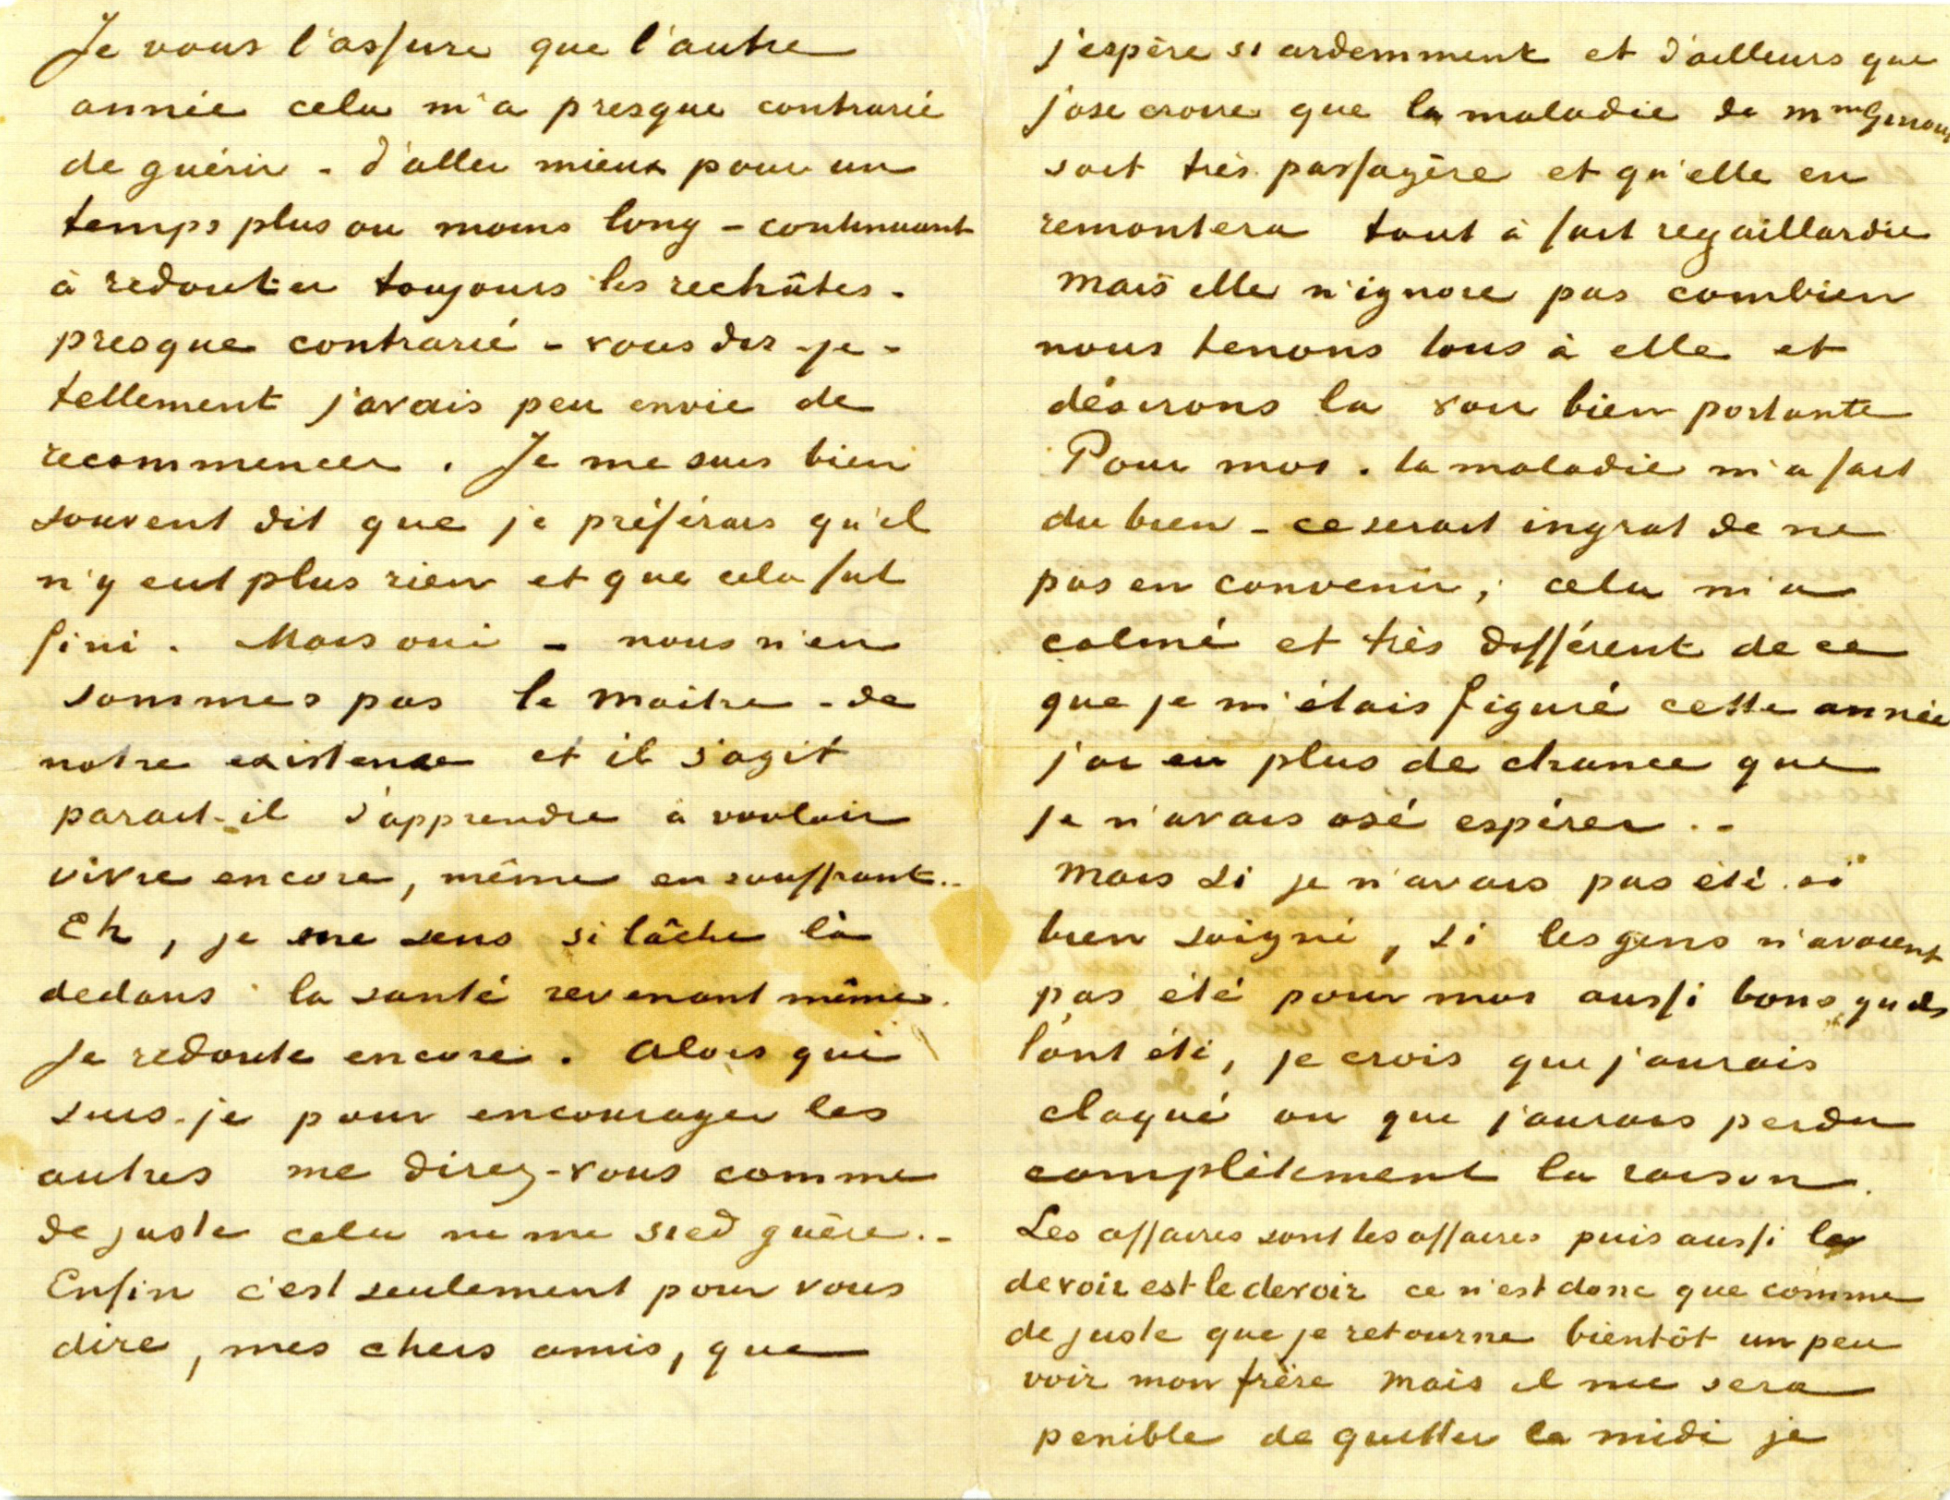 Je vous l'assure que l'autre
année cela m'a presque contrarié
de guérir - d'aller mieux pour un
temps plus ou moins long - continuant
à redouter toujours les rechûtes -
presque contrarié - vous dis-je -
tellement j'avais peu envie de
recommencer. Je me suis bien
souvent dit que je préférais qu'il
n'y eut plus rien et que cela fut
fini. Mais oui - nous n'en
sommes pas le maitre - de
notre existence et il s'agit
parait-il d'apprendre à vouloir
vivre encore, même en souffrant..
Eh, je me sens si lâche là
dedans la santé revenant même
Je redoute encore. Alors qui
suis-je pour encourager les
autres me direz-vous comme
de juste cela ne me sied guère.-
Enfin c'est seulement pour vous
dire, mes chers amis, que
j'espère si ardemment et d'ailleurs que
j'ose croire que la maladie de Mme Ginoux
soit très passagère et qu'elle en
remontera tout à fait regaillardie
Mais elle n'ignore pas combien
nous tenons tous à elle et
désirons la voir bien portante
Pour moi. la maladie m'a fait
du bien - ce serait ingrat de ne
pas en convenir; cela m'a
calmé et très différent de ce
que je m'étais figuré cette année
j'ai eu plus de chance que
je n'avais osé espérer..-
Mais si je n'avais pas été si
bien soigné, si les gens n'avaient
pas été pour moi aussi bons qu'ils
l'ont été, je crois que j'aurais
claqué ou que j'aurais perdu
complètement la raison.
Les affaires sont les affaires puis aussi le
devoir est le devoir ce n'est donc que comme
de juste que je retourne bientôt un peu
voir mon frère mais il me sera
penible de quitter le midi je